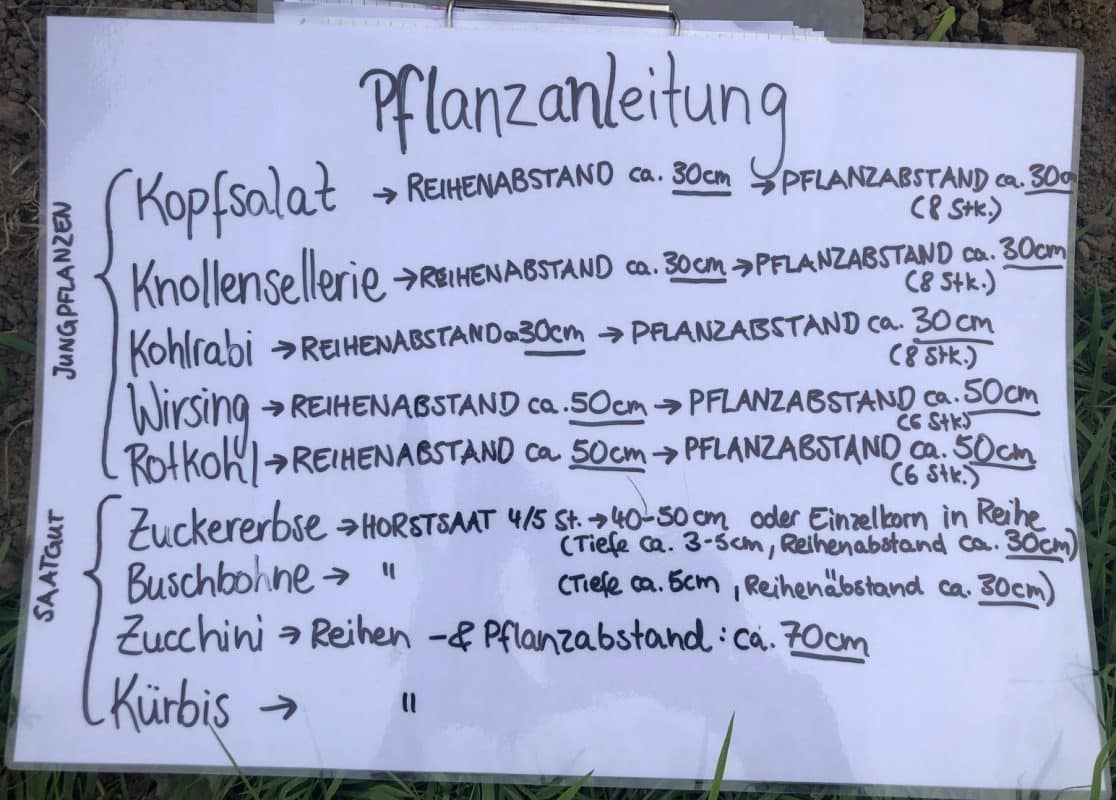 Pflanzanleitung
JUNGPFLANZEN
Kopfsalat → REIHENABSTAND ca. 30cm → PFLANZABSTAND ca. 30c
(8 Stk.)
Knollensellerie → REIHENABSTAND ca. 30cm → PFLANZABSTAND ca. 30cm
(8 Stk.)
Kohlrabi → REIHENABSTAND ca 30cm → PFLANZABSTAND ca. 30cm
(8 Stk.)
Wirsing → REIHENABSTAND ca. 50cm → PFLANZABSTAND ca. 50cm
(6 Stk.)
Rotkohl → REIHENABSTAND ca. 50cm → PFLANZABSTAND ca. 50cm
(6 Stk.)
SAATGUT
Zuckererbse → HORSTSAAT 4/5 St. → 40-50cm oder Einzelkorn in Reihe
(Tiefe ca. 3-5cm, Reihenabstand ca. 30cm)
Buschbohne → " "
(Tiefe ca. 5cm, Reihenabstand ca. 30cm)
Zucchini → Reihen -& Pflanzabstand: ca. 70cm
Kürbis → "